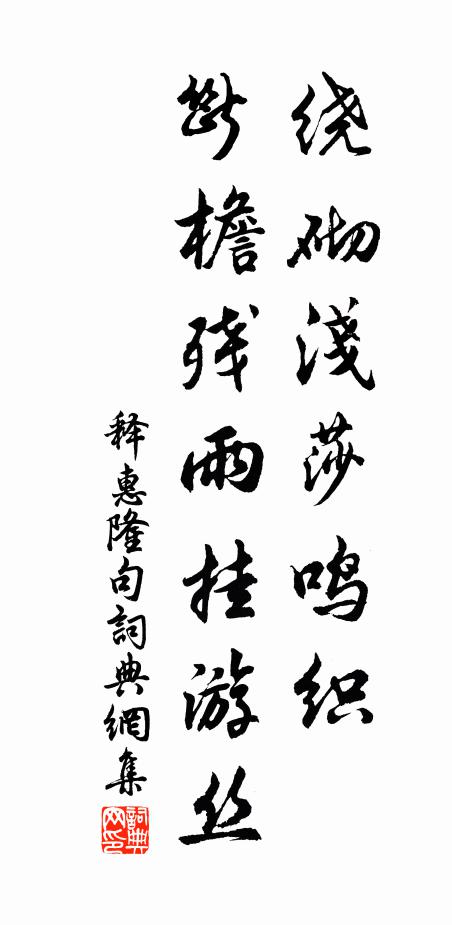 绕砌淺莎鸣织
断檐残雨挂游丝
释惠隆句詞典網集
詞典网印